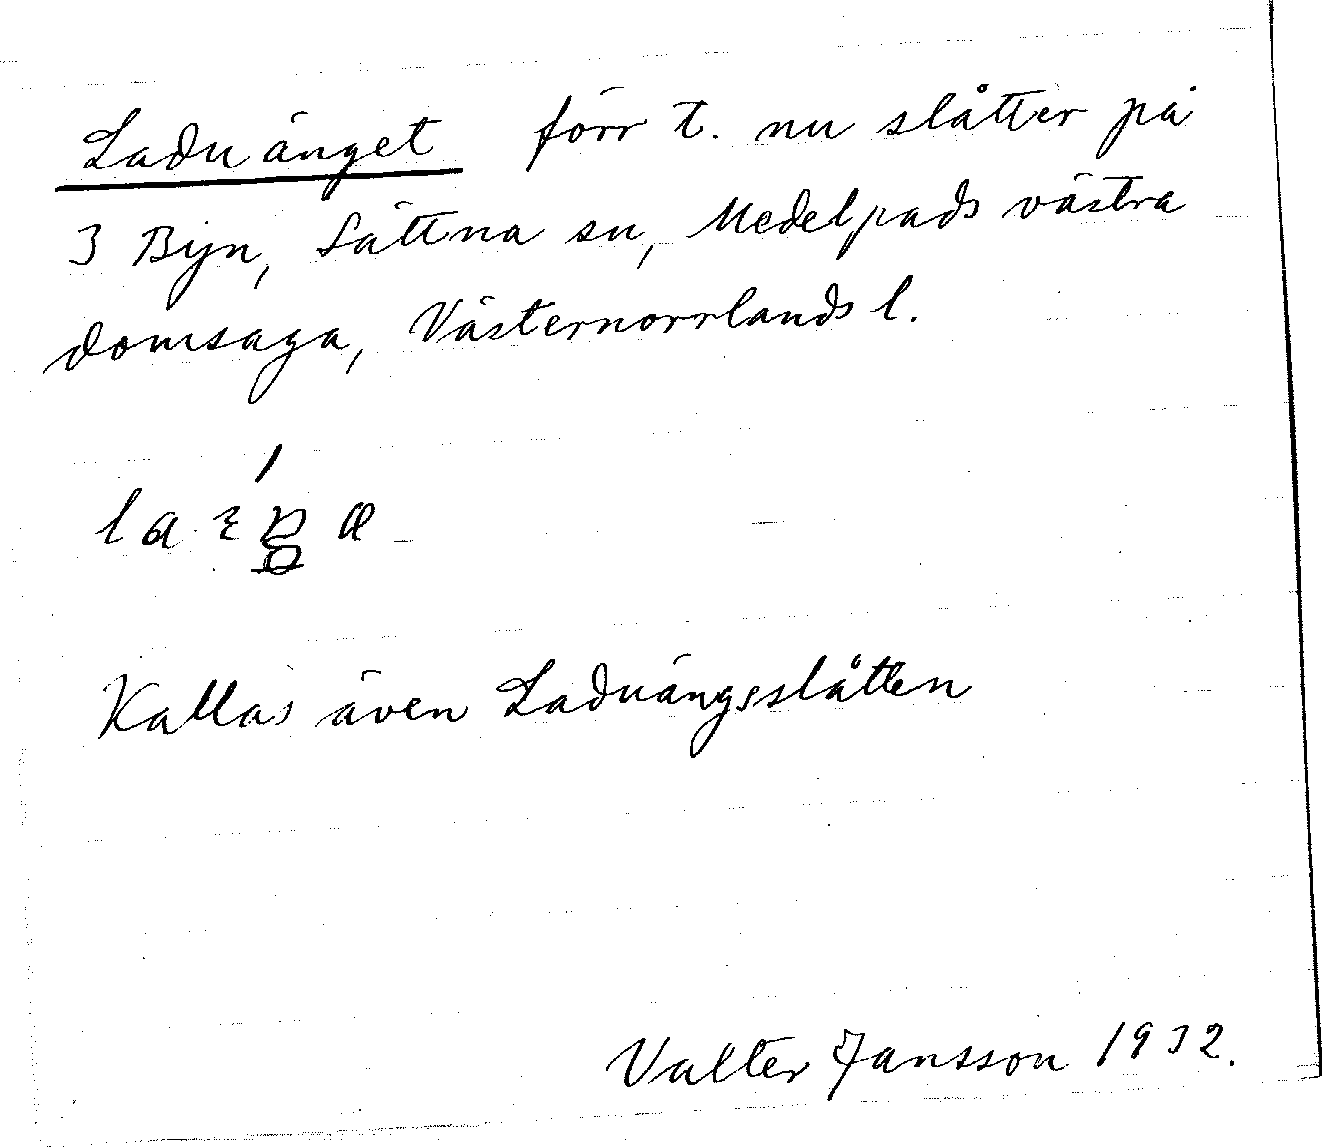 Laduänget förr t. nu slåtter på
3 Byn, Sättna sn, Medelpads västra
domsaga, Västernorrlands l.
Kallas även Laduängsslåtten
Valter Jansson 1932.